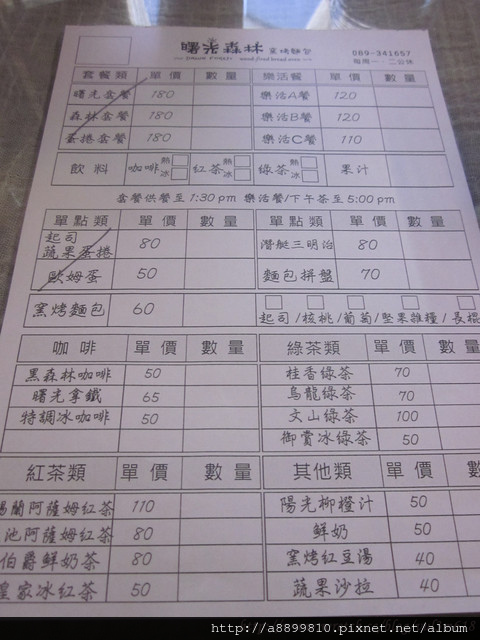 曙光森林 窯烤麵包 089-341667
每周一、二公休
套餐類 單價 數量 樂活餐 單價 數量
曙光套餐 180 樂活A餐 120
森林套餐 180 樂活B餐 120
蛋捲套餐 180 樂活C餐 110
飲料 咖啡 熱 冰 紅茶 熱 冰 綠茶 熱 冰 果汁
套餐供餐至1:30pm 樂活餐/下午茶至5:00pm
單點類 單價 數量 單點類 單價 數量
起司
蔬果蛋捲 80 潛艇三明治 80
歐姆蛋 50 麵包拼盤 70
窯烤麵包 60 起司/核桃/葡萄/堅果雜糧/長棍
咖啡 單價 數量 綠茶類 單價 數量
黑森林咖啡 50 桂香綠茶 70
曙光拿鐵 65 烏龍綠茶 70
特調冰咖啡 50 文山綠茶 100
御賞冰綠茶 50
紅茶類 單價 數量 其他類 單價 數量
錫蘭阿薩姆紅茶 110 陽光柳橙汁 50
池阿薩姆紅茶 80 鮮奶 50
伯爵鮮奶茶 80 窯烤紅豆湯 40
皇家冰紅茶 50 蔬果沙拉 40
http://a8899810.pixnet.net/album